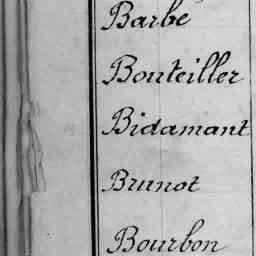 Barbe
Bouteiller
Bidamant
Brunot
Bourbon